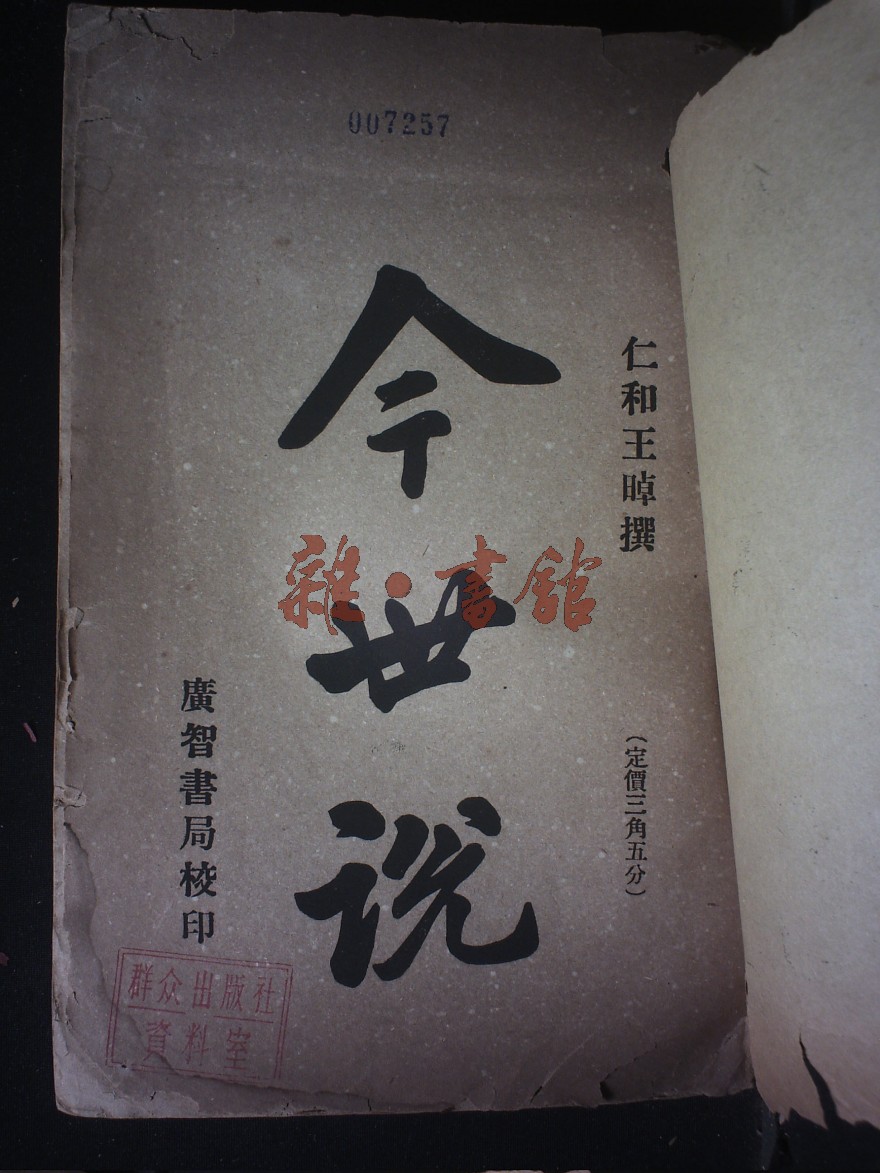 007257
仁和王晫撰
(定價三角五分)
今世说
廣智書局校印
雜·書館
群众出版社
資料室